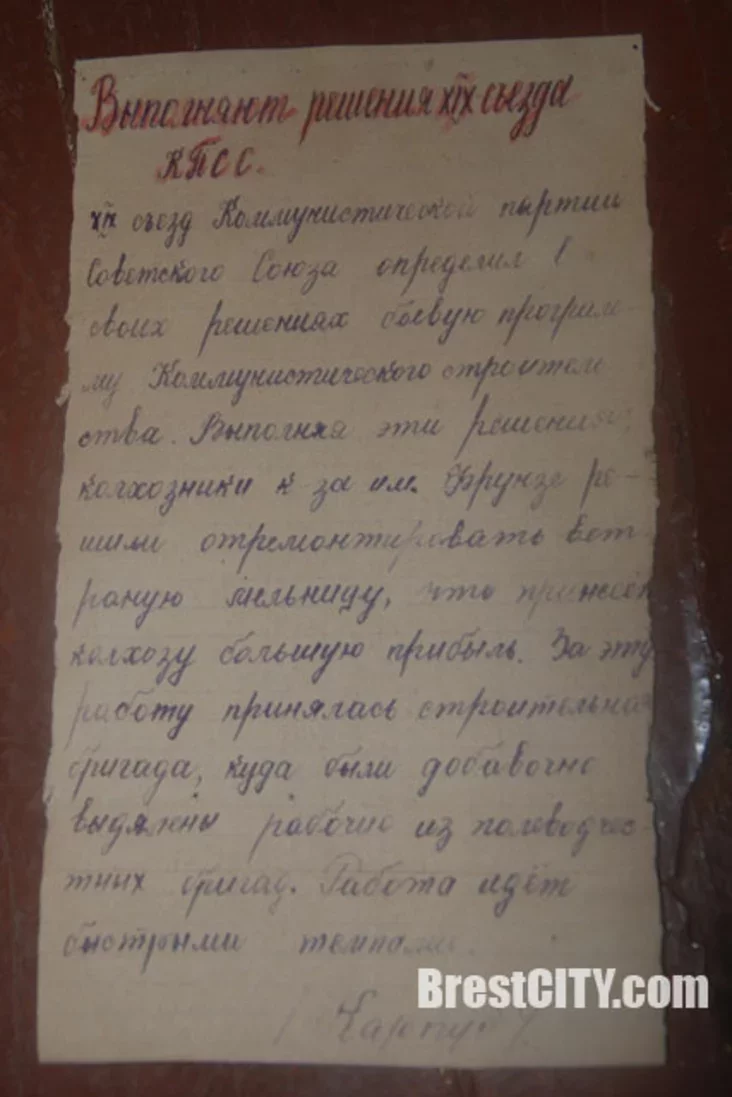 Выполняют решения XIX съезда
КПСС.
XIX съезд Коммунистической партии
Советского Союза определил
своих решениях боевую програм-
му Коммунистического строитель
ства. Выполняя эти решения,
колхозники к-за им. Фрунзе ре-
шили отремонтировать вет-
раную мельницу, что принесёт
колхозу большую прибыль. За эту
работу принялась строительная
бригада, куда были добавочно
рабочие из
бригад. Работа идёт
быстрыми темпами.
BrestCITY.com